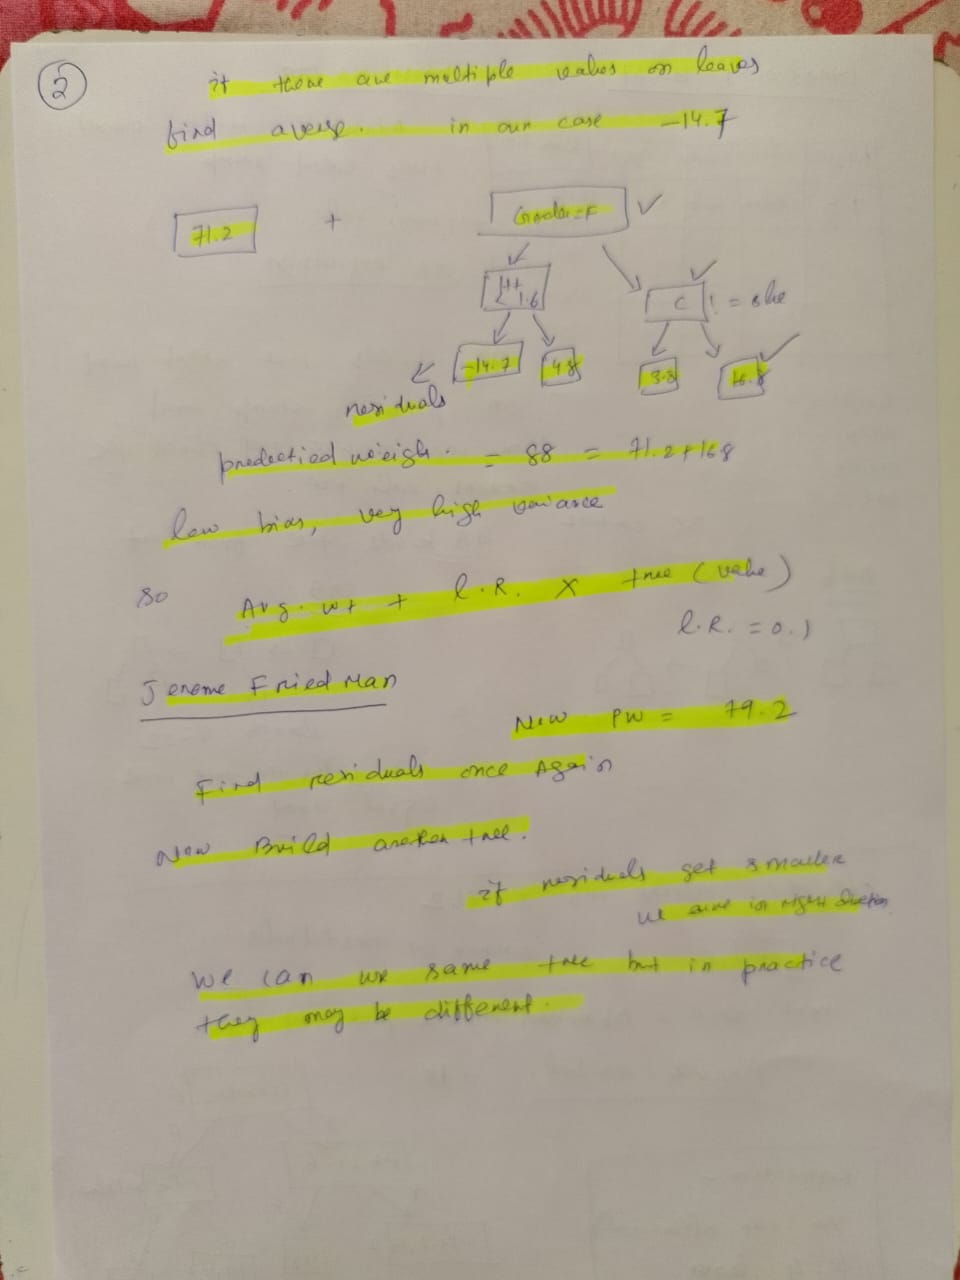 2
if there are multiple values on leaves
find averge. in our case -14.7
71.2 + Gender=F
Ht < 1.6
C != blue
-14.7 4.8 3.8 16.8
residuals
predectied weigh. = 88 = 71.2+16.8
low bias, very high variance
so Avg. wt + l.R. X tree (value)
l.R. = 0.1
Jerome Friedman
New PW = 79.2
Find residuals once Again
Now Build another tree.
if residuals get smaller
we are in right direction
we can use same tree but in practice
they may be different.